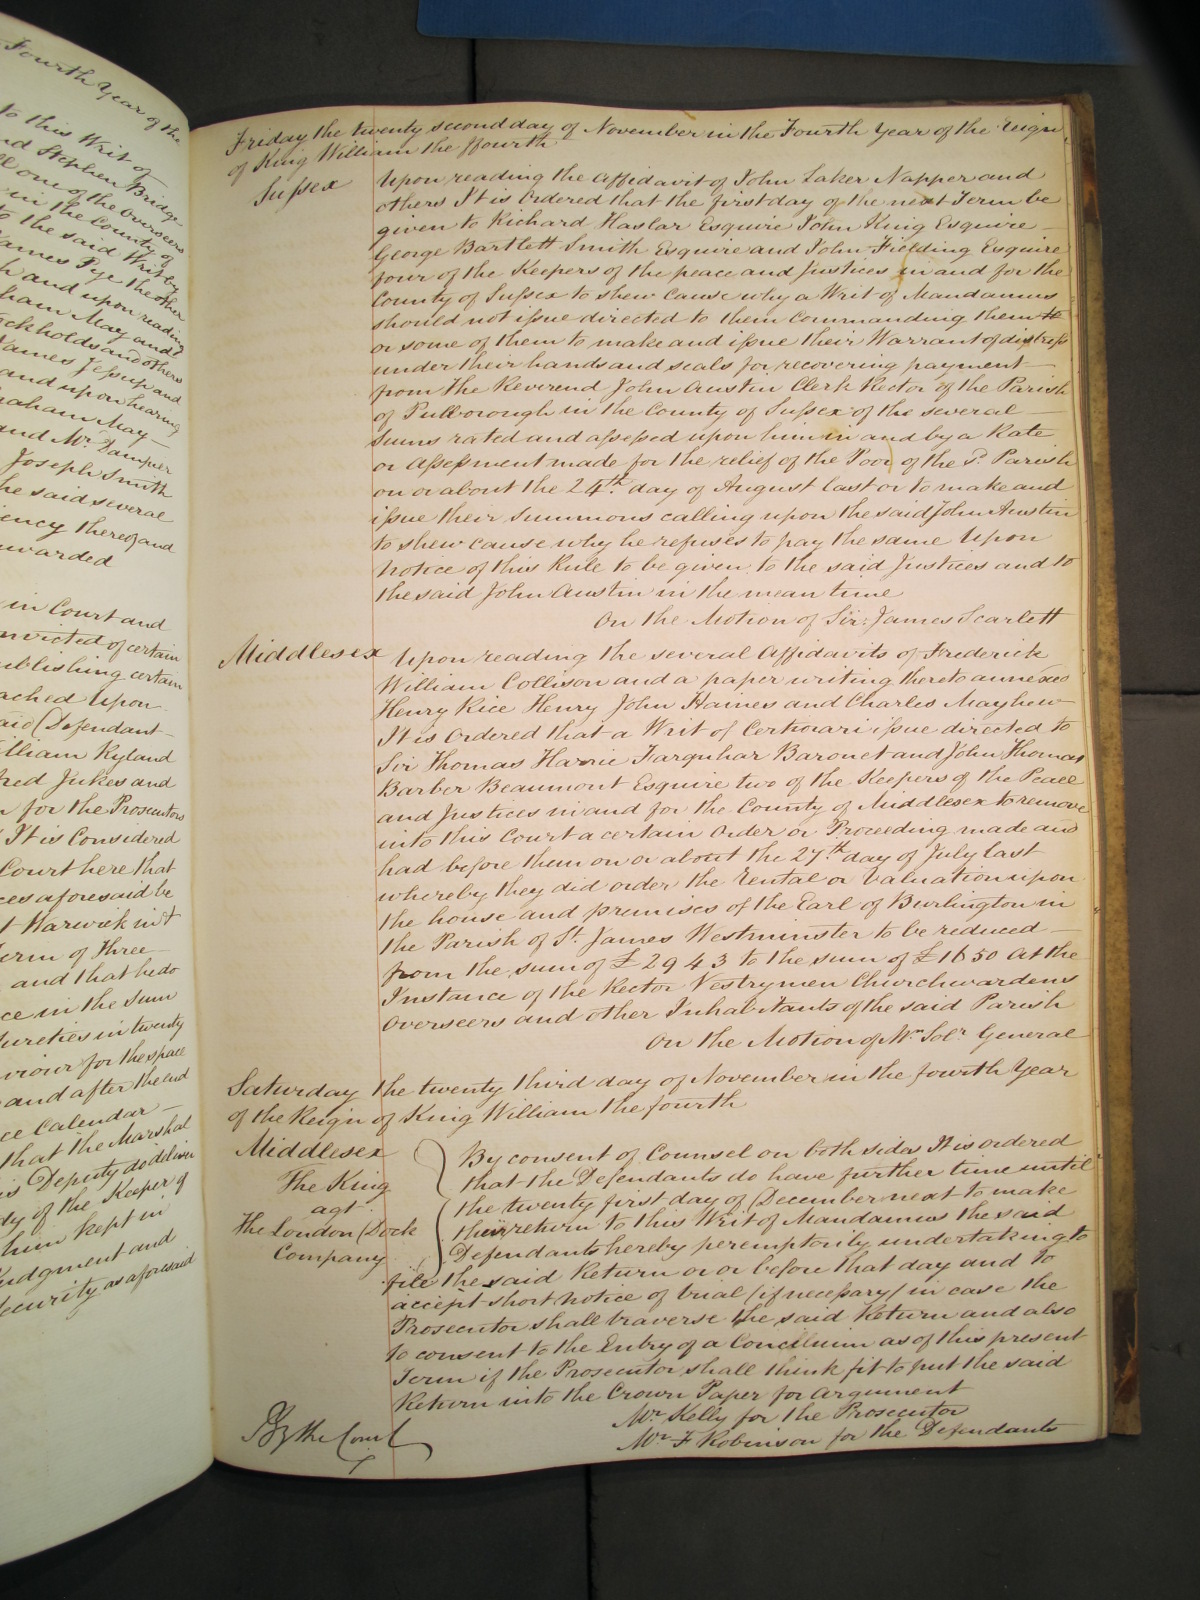 Fourth Year of the
to this Writ of
and Stephen Bridge
one of the Overseers
in the County of
to the said Writ by
James Pye the other
and upon reading
than May and
ockholds and others
James Jessup and
and upon hearing
raham May
and Mr. Dampier
Joseph Smith
the said several
iency thereof and
warded
in Court and
onvicted of certain
ublishing certain
ached Upon
said Defendant
illiam Ryland
red Jukes and
n for the Prosecutors
It is Considered
Court here that
ces aforesaid be
t Warwick in &
erm of Three
and that he do
ce in the Sum
ureties in twenty
viour for the space
and after the end
ce Calendar
that the Marshal
is Deputy do deliver
dy of the Keeper of
him kept in
udgment and
ecurity as aforesaid
Friday the twenty second day of November in the Fourth Year of the reign
of King William the ffourth
Sussex
Upon reading the Affidavit of John Laker Napper and
others It is Ordered that the first day of the next Term be
given to Richard Haslar Esquire John King Esquire
George Bartlett Smith Esquire and John Fielding Esquire
four of the Keepers of the peace and Justices in and for the
County of Sussex to shew Cause why a Writ of Mandamus
should not issue directed to them Commanding them
or some of them to make and issue their Warrant of distress
under their hands and seals for recovering payment
from the Reverend John Austin Clerk Rector of the Parish
of Pulborough in the County of Sussex of the several
Sums rated and assessed upon him in and by a Rate
or Assessment made for the relief of the Poor of the sd. Parish
on or about the 24th. day of August last or to make and
issue their Summons calling upon the said John Austin
to shew cause why he refuses to pay the same Upon
notice of this Rule to be given to the said Justices and to
the said John Austin in the mean time
On the Motion of Sir James Scarlett
Middlesex
Upon reading the several Affidavits of Frederick
William Collison and a paper writing thereto annexed
Henry Rice Henry John Haines and Charles Mayhew
It is Ordered that a Writ of Certiorari issue directed to
Sir Thomas Harvie Farquhar Baronet and John Thomas
Barber Beaumont Esquire two of the Keepers of the Peace
and Justices in and for the County of Middlesex to remove
into this Court a certain Order or Proceeding made and
had before them on or about the 27th. day of July last
whereby they did order the Rental or Valuation upon
the house and premises of the Earl of Burlington in
the Parish of St. James Westminster to be reduced
from the sum of £2943 to the sum of £1650 At the
Instance of the Rector Vestrymen Churchwardens
Overseers and other Inhabitants of the said Parish
On the Motion of Mr. Solr. General
Saturday the twenty third day of November in the fourth Year
of the Reign of King William the fourth
Middlesex
The King
agt.
The London Dock
Company
By consent of Counsel on both sides It is ordered
that the Defendants do have further time until
the twenty first day of December next to make
their return to this Writ of Mandamus the said
Defendants hereby peremptorily undertaking to
file the said Return on or before that day and to
accept short notice of trial (if necessary) in case the
Prosecutor shall traverse the said Return and also
to consent to the Entry of a Concilium as of this present
Term if the Prosecutor shall think fit to put the said
Return into the Crown Paper for Argument
Mr. Kelly for the Prosecutor
Mr. F Robinson for the Defendants
By the Court